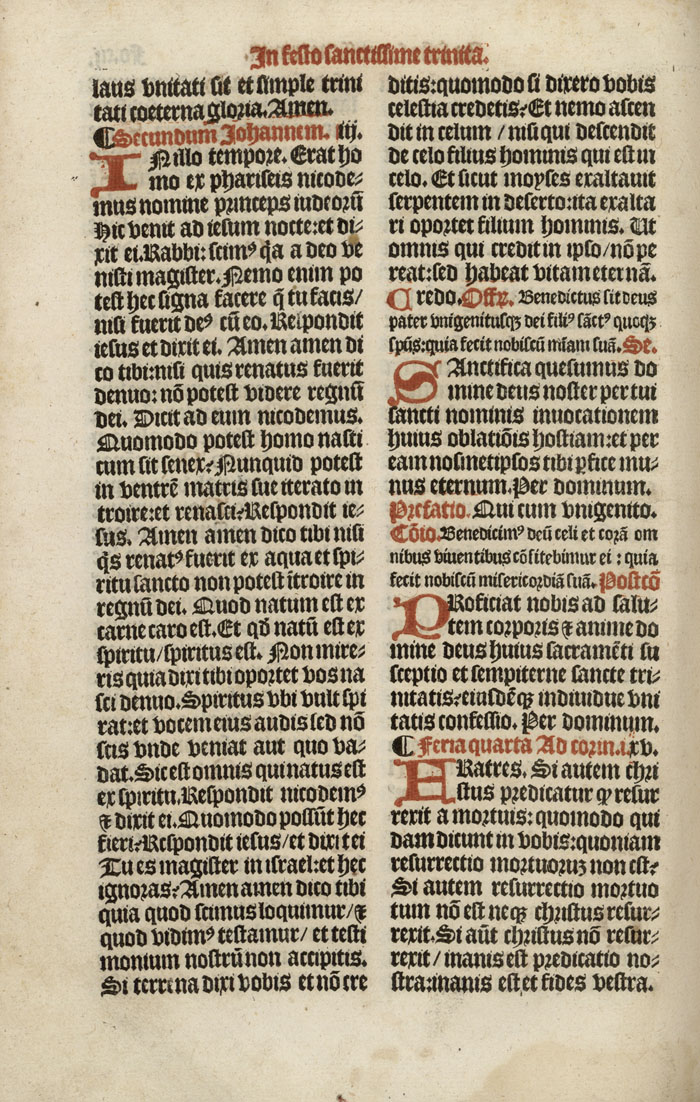 In festo sanctissime trinita.
laus vnitati sit et simple trini
tati coeterna gloria. Amen.
¶Secundum Johannem. iij.
IN illo tempore. Erat ho
mo ex phariseis nicode⸗
mus nomine princeps iudeorū
Hic venit ad iesum nocte:et di⸗
xit ei. Rabbi: scimꝰ q̄a a deo ve
nisti magister. Nemo enim po
test hec signa facere q̄ tu facis/
nisi fuerit deꝰ cū eo. Respondit
iesus et dixit ei. Amen amen di
co tibi:nisi quis renatus fuerit
denuo: nō potest videre regnū
dei. Dicit ad eum nicodemus.
Quomodo potest homo nasci
cum sit senex? Nunquid potest
in ventrē matris sue iterato in
troire:et renasci? Respondit ie⸗
sus. Amen amen dico tibi nisi
q̄s renatꝰ fuerit ex aqua et spi⸗
ritu sancto non potest ītroire in
regnū dei. Quod natum est ex
carne caro est. Et qđ natū est ex
spiritu/spiritus est. Non mire⸗
ris quia dixi tibi oportet vos na
sci denuo. Spiritus vbi vult spi
rat:et vocem eius audis sed nō
scis vnde veniat aut quo va⸗
dat. Sic est omnis qui natus est
ex spiritu. Respondit nicodemꝰ
⁊ dixit ei. Quomodo possūt hec
fieri? Respondit iesus/et dixit ei
Tu es magister in israel:et hec
ignoras? Amen amen dico tibi
quia quod scimus loquimur/⁊
quod vidimꝰ testamur/ et testi
monium nostrū non accipitis.
Si terrena dixi vobis et nō cre
ditis:quomodo si dixero vobis
celestia credetis? Et nemo ascen
dit in celum / nisi qui descendit
de celo filius hominis qui est in
celo. Et sicut moyses exaltauit
serpentem in deserto:ita exalta
ri oportet filium hominis. Ut
omnis qui credit in ipso/nō pe
reat:sed habeat vitam eternā.
Credo. Offr. Benedictus sit deus
pater vnigenitusqꝫ dei filiꝰ sāctꝰ quoqꝫ
spūs:quia fecit nobiscū m̄iam suā. Se.
SAnctifica quesumus do
mine deus noster per tui
sancti nominis inuocationem
huius oblatiōis hostiam:et per
eam nosmetipsos tibi ꝑfice mu⸗
nus eternum. Per dominum.
Prefatio. Qui cum vnigenito.
Cōio. Benedicimꝰ deū celi et corā om
nibus viuentibus cōfitebimur ei : quia
fecit nobiscū misericordiā suā. Postcō
PRoficiat nobis ad salu⸗
tem corporis ⁊ anime do
mine deus huius sacramēti su
sceptio et sempiterne sancte tri⸗
nitatis?eiusdēqꝫ indiuidue vni
tatis confessio. Per dominum.
¶ Feria quarta Ad corin.i.xv.
FRatres. Si autem chri
stus predicatur ꝙ resur
rexit a mortuis: quomodo qui
dam dicunt in vobis:quoniam
resurrectio mortuoruꝫ non est?
Si autem resurrectio mortuo
tum nō est neqꝫ christus resur⸗
rexit. Si aūt christus nō resur⸗
rexit / inanis est predicatio no⸗
stra:inanis est et fides vestra.